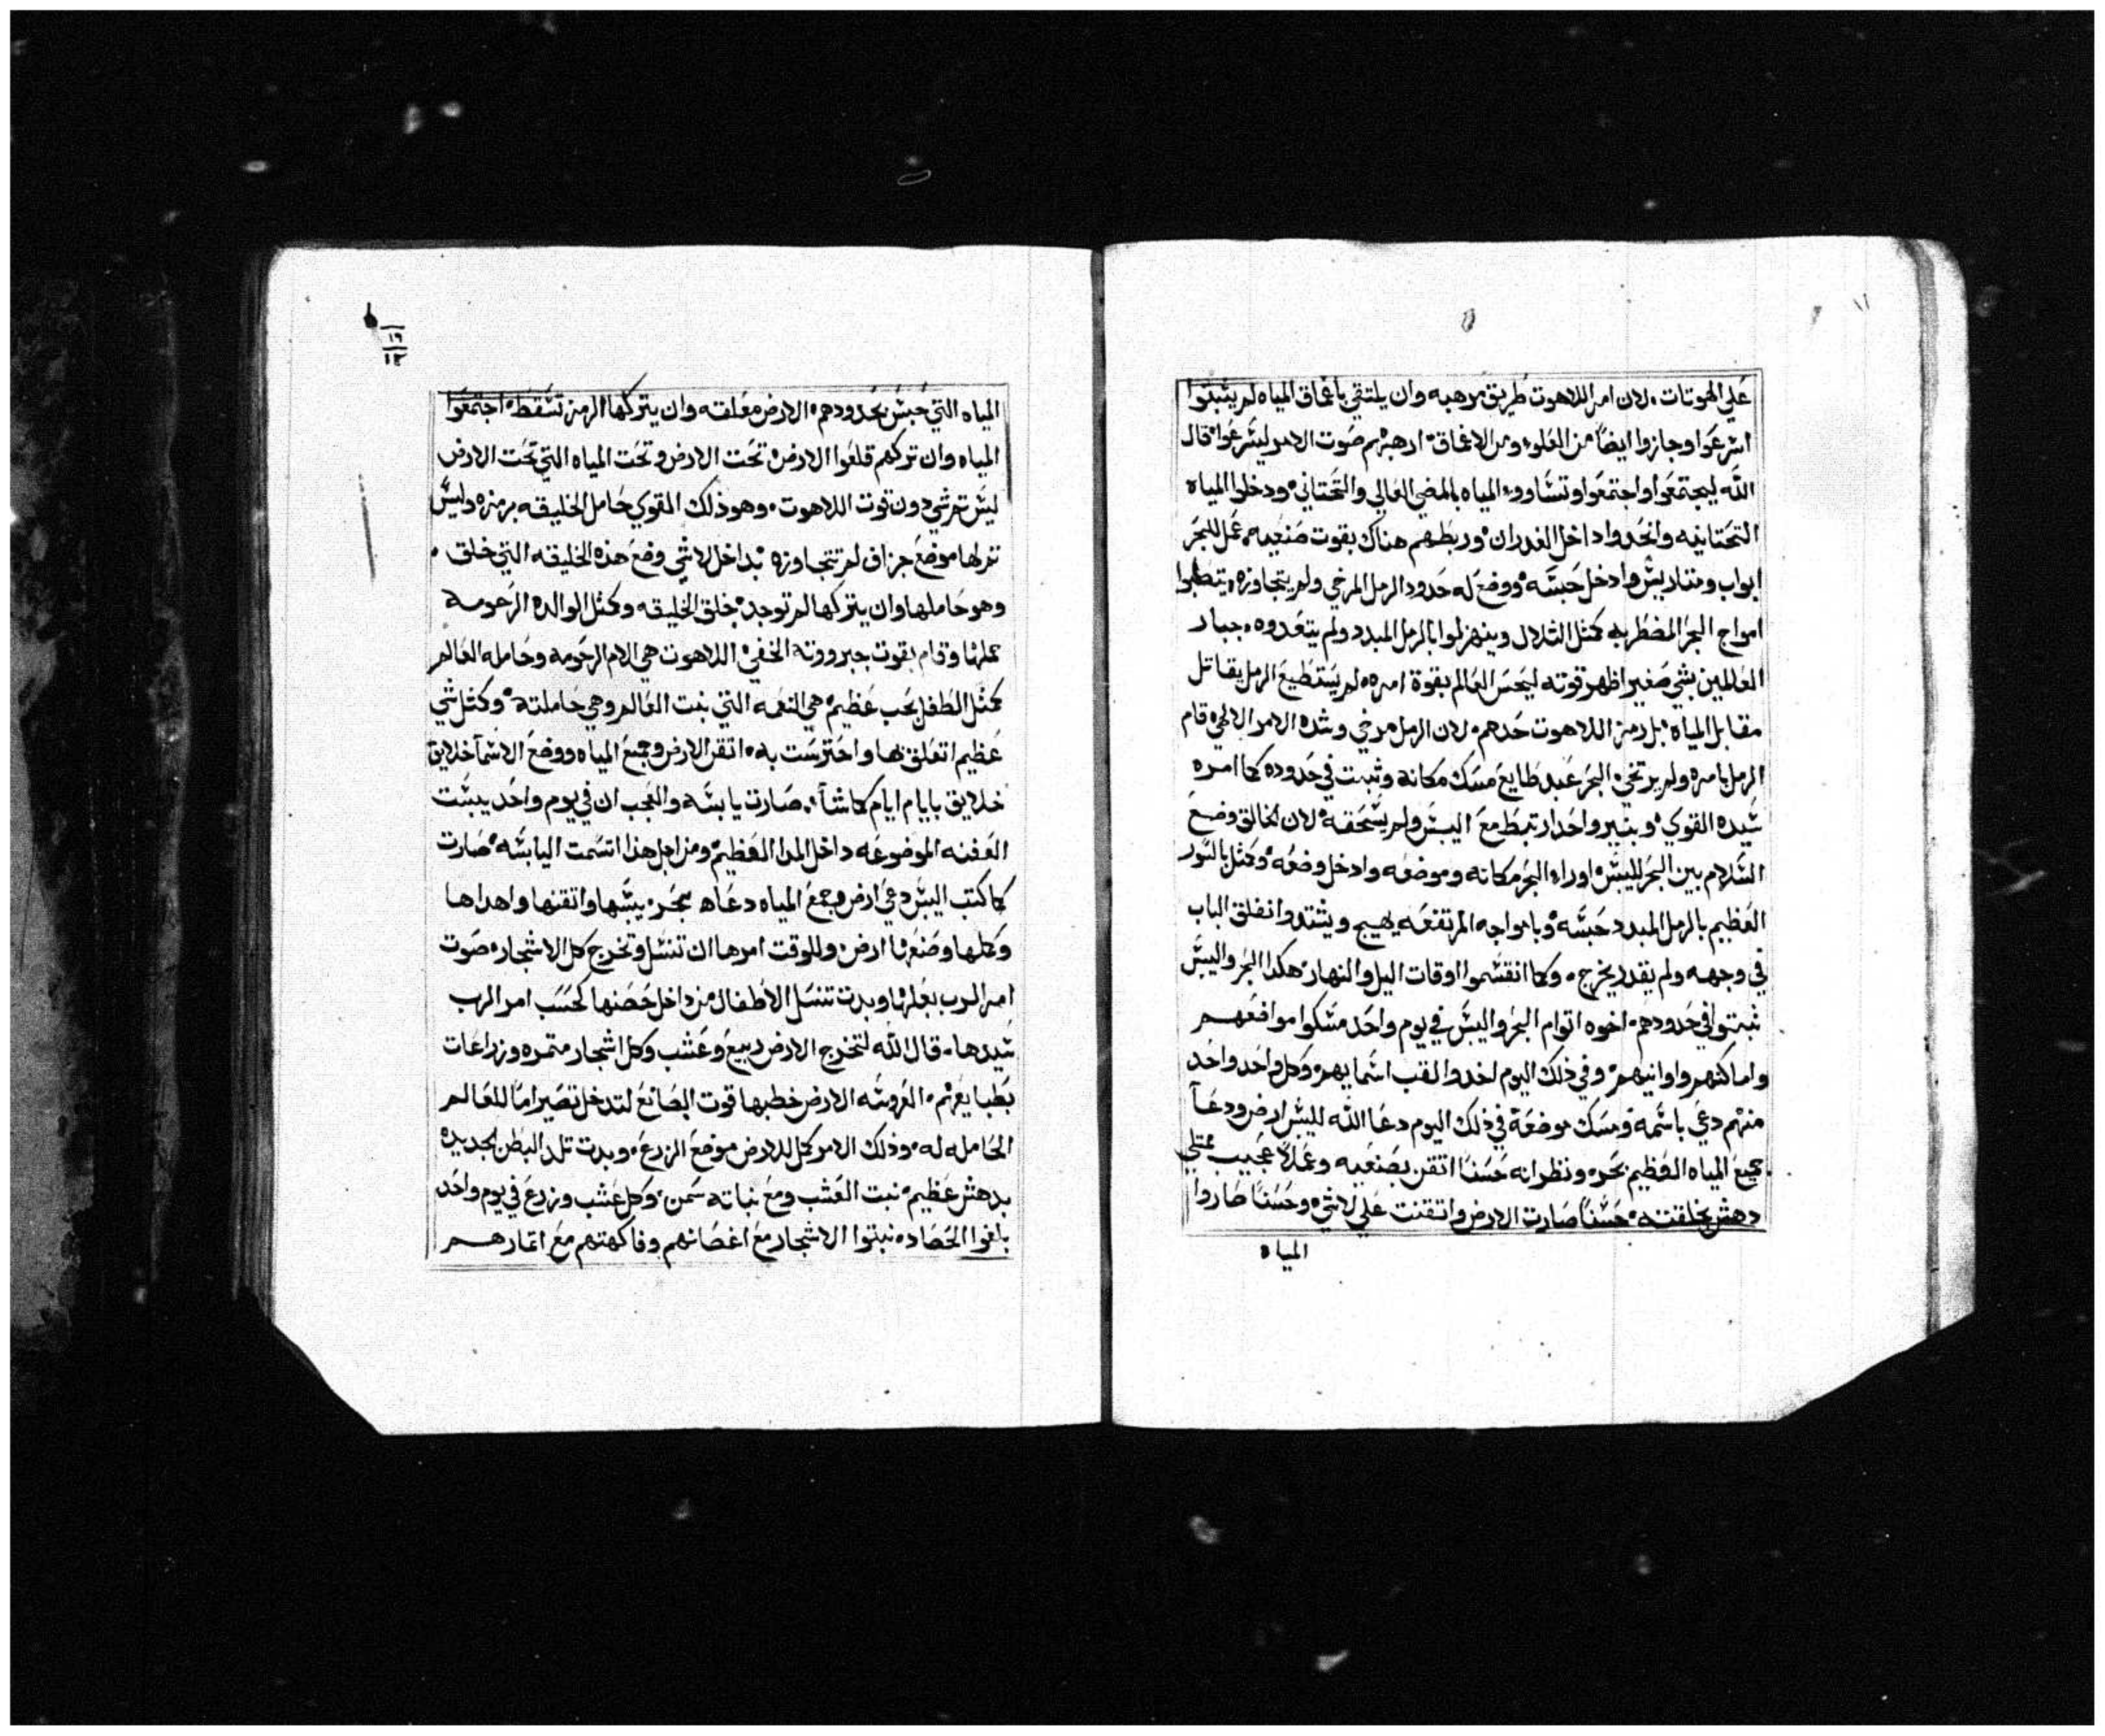 علي الهوتات. لان امر اللاهوت طريق مرهبه وان يلتقي باعماق المياه لم يثبتوا
اسرعوا وجازوا ايضاً من العلو ومن الاعماق. ارهبهم صوت الامر ليسرعوا. قال
الله ليجتمعوا واجتمعوا وتساووا المياه بالمضي العالي والتحتاني. ودخلوا المياه
التحتانيه وانحدوا داخل الغدران. وربطهم هناك بقوت صنعيه. عمل للبحر
ابواب ومتاريس وادخل حبسه. ووضع له حدود الرمل المرخي ولم يتجاوزه.
امواج البحر المضطربه كمثل التلال وينهزلوا بالرمل المبدد ولم يتعدوه. جبار
العالمين بشي صغير اظهر قوته ليحبس العالم بقوة امره. لم يستطيع الرمل يقاتل
مقابل المياه. بل رمز اللاهوت حدهم. لان الرمل مرخي وشده الامر الالهي. قام
الرمل بامره ولم يرتخي. البحر عبد طايع مسك مكانه وثبت في حدوده كما امره
سيده القوي. وبنير واحد ارتبط مع اليبس ولم يسحقه. لان الخالق وضع
السلام بين البحر لليبس. اوراء البحر مكانه وموضعه وادخل وضعه. وكمثل بالتور
العظيم بالرمل المبدد حبسه. وبامواجه المرتفعه يهيج ويشتد وانغلق الباب
في وجهه ولم يقدر يخرج. وكما انقسموا اوقات اليل والنهار. هكذا البحر واليبس
ثبتوا في حدودهم. اخوه اتوام البحر واليبس في يوم واحد مسكوا مواضعهم
واماكنهم واوانيهم. وفي ذلك اليوم اخدوا لقب اسمايهم. وكل واحد واحد
منهم دعي باسمه ومسك موضعه في ذلك اليوم دعا الله لليبس ارض ودعا
جميع المياه العظيم بحر. ونظر انه حسناً اتقن بصنعيه وعملاً عجيب ممتلي
دهش بخلقته. حسناً صارت الارض واتقنت علي لاشي. وحسناً صاروا
المياه
١٩
١٢
المياه التي حبس بحدودهم. الارض معلقه وان يتركها الرمز تسقط. اجتمعوا
المياه وان تركهم قلعوا الارض. تحت الارض وتحت المياه التي تحت الارض
ليس تم شي دون قوت اللاهوت. وهو ذلك القوي حامل الخليقه برمزه وليس
تم لها موضع جزاف لم تتجاوزه. بداخل لاشي وضع هذه الخليقه التي خلق.
وهو حاملها وان يتركها لم توجد. خلق الخليقه وكمثل الوالده الرحومه
حملها وقام بقوت جبرووته الخفي. اللاهوت هي الام الرحومه وحامله العالم
كمثل الطفل بحب عظيم. هي النعمه التي بنت العالم وهي حاملته. وكمثل شي
عظيم اتعلق بها واحترست به. اتقن الارض وجمع المياه ووضع الاسما خلايق
خلايق بايام ايام كما شا. صارت يابسه والعجب ان في يوم واحد يبست
العفنه الموضوعه داخل الما العظيم. ومن اجل هذا اتسمت اليابسه. صارت
كما كتب اليبس دعي ارض وجمع المياه دعاه بحر. يبسها واتقنها واهداها
وكملها وصنعها ارض. وللوقت امرها ان تنسل وتخرج كل الاشجار. صوت
امر الرب بعلها وبدت تنسل الاطفال من داخل حصنها كحسب امر الرب
سيدها. قال الله لتخرج الارض ربيع وعشب وكل اشجار متمره وزراعات
بطبايعهم. العروسه الارض خطبها قوت الصانع لتدخل تصير اماً للعالم
الحامله له. وذلك الامر كلل للارض موضع الزرع. وبدت تلد البطن الجديده
بدهش عظيم. نبت العشب ومع نباته سمن. وكل عشب وزرع في يوم واحد
بلغوا الحصاد. نبتوا الاشجار مع اغصانهم وفاكهتهم مع اتمارهم